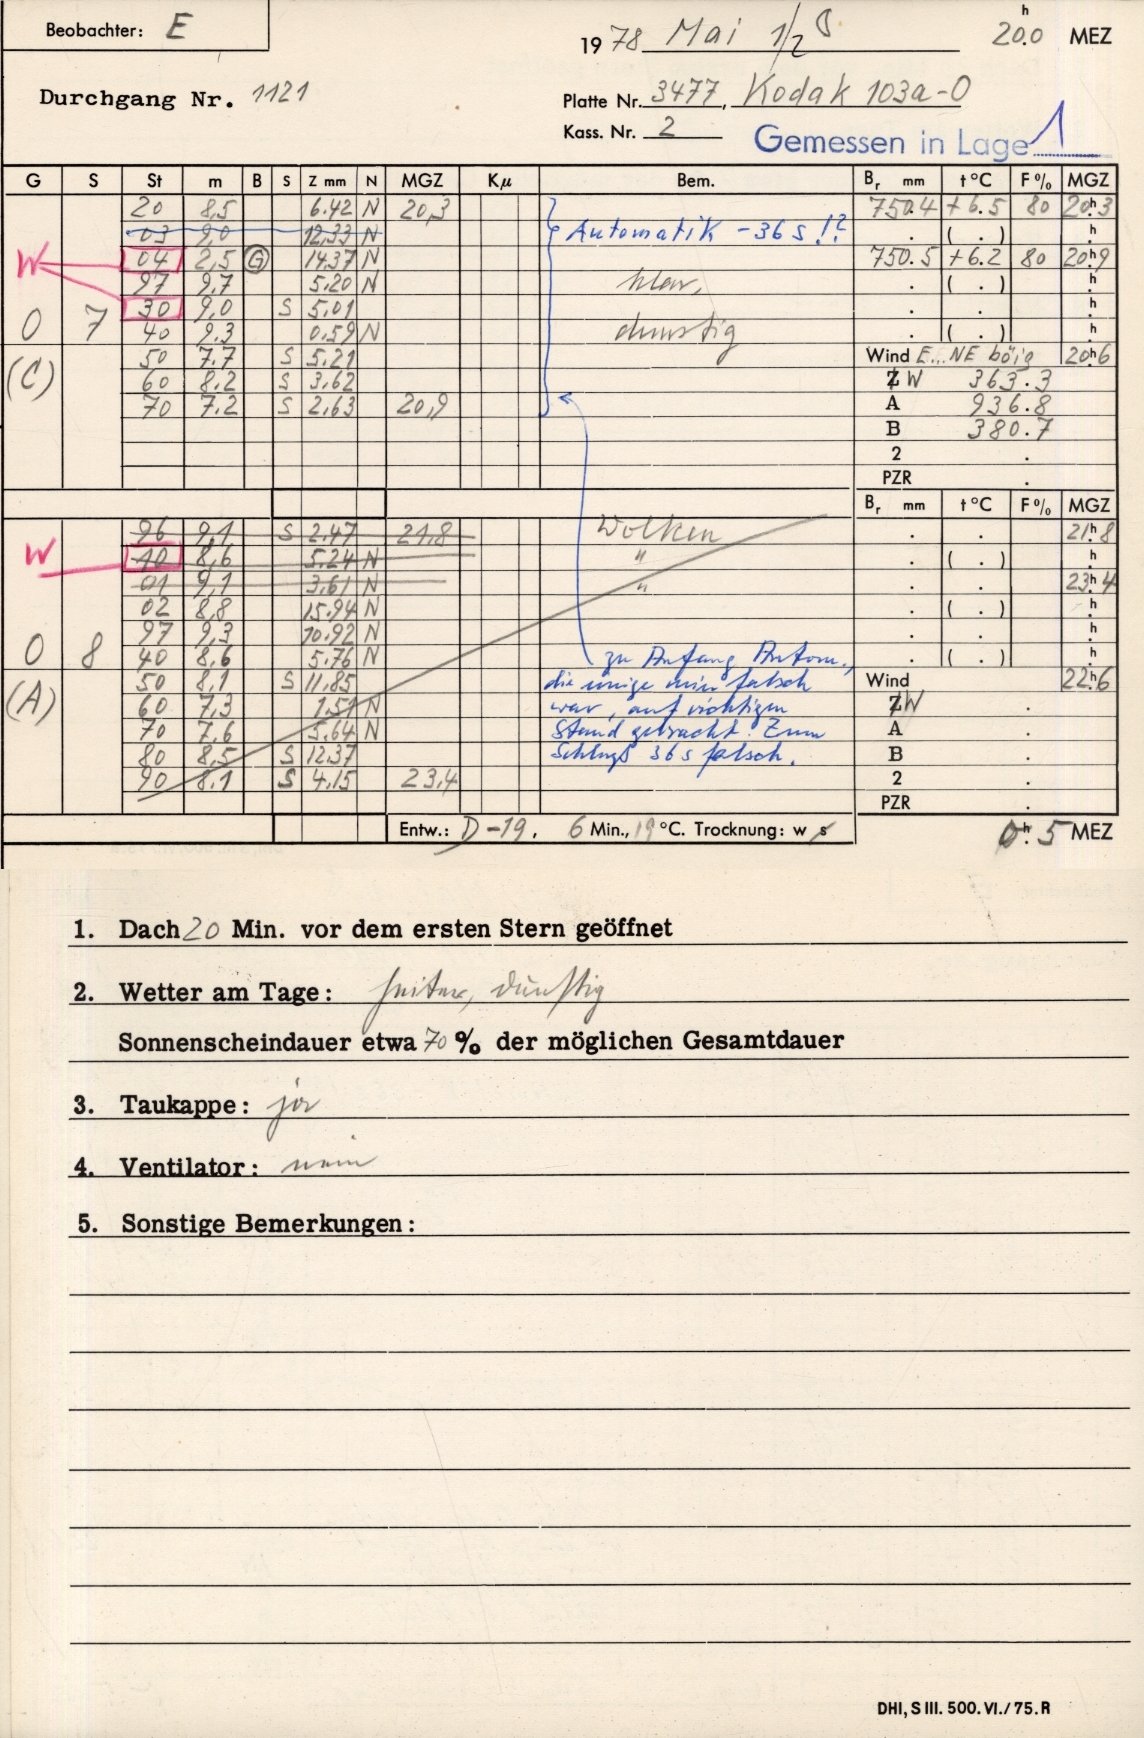 Beobachter: E
1978 Mai 1/2 20.0 h MEZ
Durchgang Nr. 1121
Platte Nr. 3477, Kodak 103a-O
Kass. Nr. 2
Gemessen in Lage 1
G S St m B S Z mm N MGZ Kμ Bem. Br mm t °C F % MGZ
20 8,5 6.42 N 20,3 750.4 +6.5 80 20h3
03 9,0 12,33 N Automatik -36 s !? . ( . ) h
W 04 2,5 G 14.37 N 750.5 +6.2 80 20h9
97 9,7 5.20 N klar, . ( . ) h
30 9,0 S 5,01 . . h
0 7 40 9.3 0.59 N dunstig . ( . ) h
50 7.7 S 5.21 Wind E...NE böig 20h6
(C) 60 8.2 S 3,62 Z W 363.3
70 7.2 S 2,63 20,9 A 936.8
B 380.7
2 .
PZR .
Br mm t °C F % MGZ
96 9,1 S 2.47 21,8 Wolken . . 21h8
W 10 8,6 5.24 N " . ( . ) h
01 9,1 3,61 N " . . 23h4
02 8,8 15.94 N . ( . ) h
97 9,3 10.92 N . . h
0 8 40 8,6 5.76 N zu Anfang Autom., . ( . ) h
50 8,1 S 11,85 die einige min falsch Wind 22h6
(A) 60 7,3 1.51 N war, auf richtigen Z W .
70 7,6 5,64 N Stand gebracht. Zum A .
80 8,5 S 12.37 Schluß 36 s falsch. B .
90 8.1 S 4.15 23,4 2 .
PZR .
Entw.: D-19, 6 Min., 19 °C. Trocknung: w s 0h.5 MEZ
1. Dach 20 Min. vor dem ersten Stern geöffnet
2. Wetter am Tage: heiter, dunstig
Sonnenscheindauer etwa 70 % der möglichen Gesamtdauer
3. Taukappe: ja
4. Ventilator: nein
5. Sonstige Bemerkungen:
DHI, S III. 500. VI./75. R